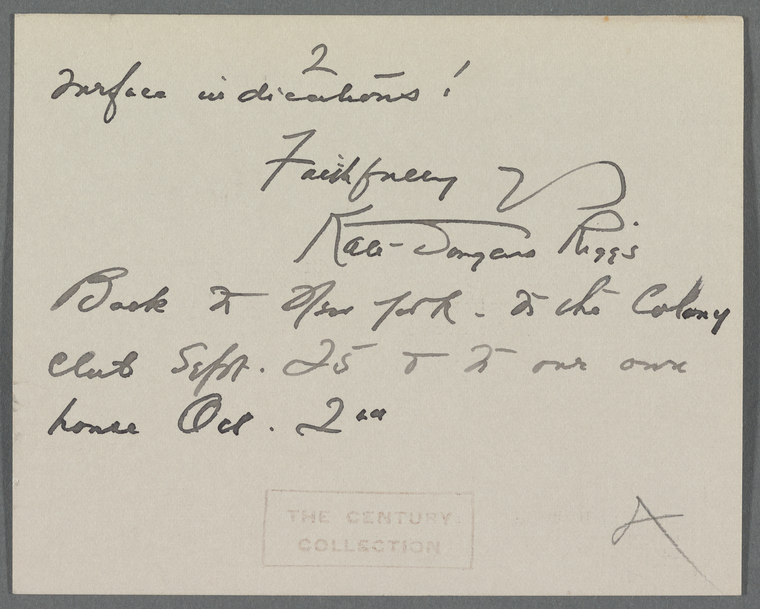 2
surface indications!
Faithfully
Kate Douglas Riggs
Back to New York - to the Colony
Club Sept. 25 & to our own
house Oct. 2nd
THE CENTURY
COLLECTION